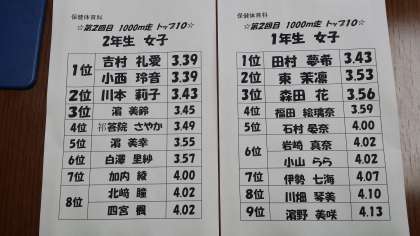 保健体育科
☆第2回目 1000m走 トップ10☆
2年生 女子
1位 吉村 礼愛 3.39
小西 玲音 3.39
2位 川本 莉子 3.43
3位 濵 美鈴 3.45
4位 祁答院 さやか 3.49
5位 濵 美幸 3.55
6位 白澤 里紗 3.57
7位 加内 綾 4.00
8位 北﨑 瞳 4.02
四宮 楓 4.02
保健体育科
☆第2回目 1000m走 トップ10☆
1年生 女子
1位 田村 夢希 3.43
2位 東 茉凛 3.53
3位 森田 花 3.56
4位 福田 絵璃奈 3.59
5位 石村 晏奈 4.00
6位 岩崎 真奈 4.02
小山 らら 4.02
7位 伊勢 七海 4.07
8位 川畑 琴美 4.10
9位 濵野 美咲 4.13